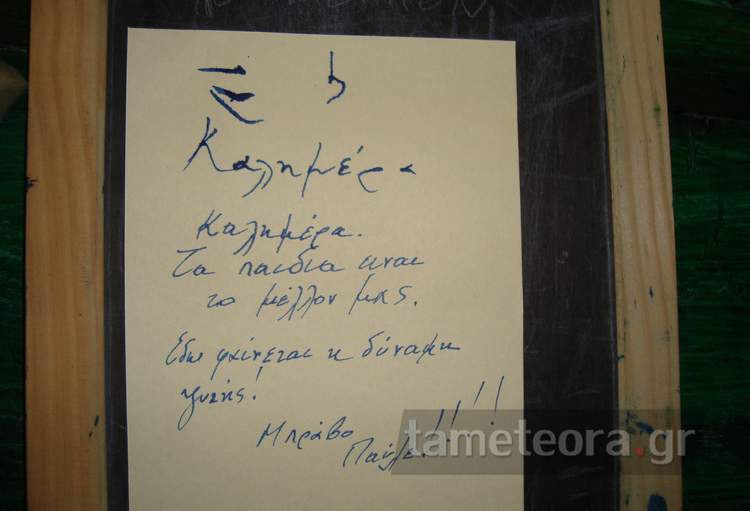 Καλημέρα
Καλημέρα.
Τα παιδια ειναι
το μέλλον μας.
Εδω φαίνεται η δύναμη
ψυχής!
Μπράβο
Παύλε!!!!
tameteora.gr